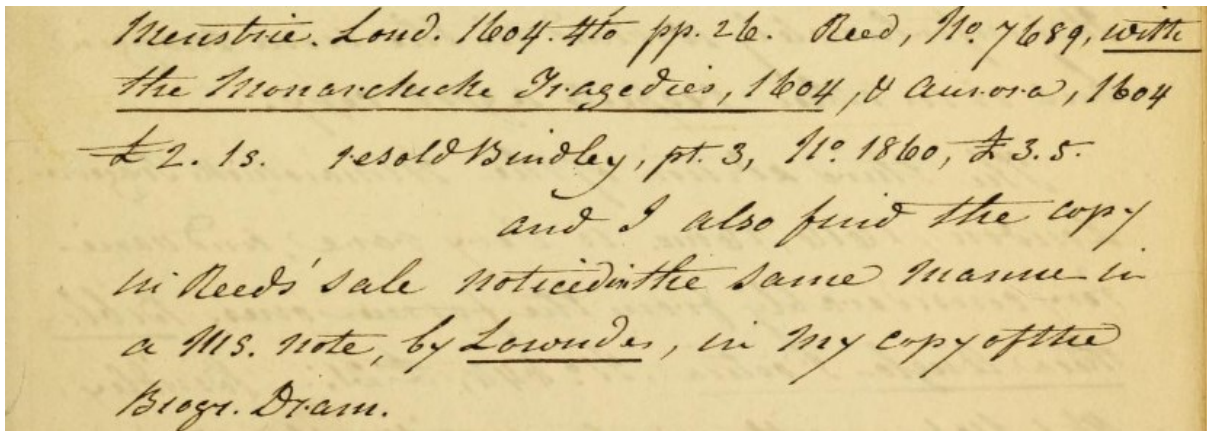 Menstrie. Lond. 1604. 4to pp. 26. Reed, No. 7689, with
the Monarchicke Tragedies, 1604, & Aurora, 1604
£2. 1s. resold Bindley, pt. 3, No. 1860, £3. 5.
and I also find the copy
in Reeds' sale noticed in the same manner in
a MS. note, by Lowndes, in my copy of the
Biogr. Dram.